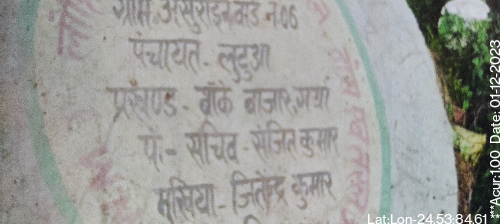 ग्राम. असुराईन वार्ड न.06
पंचायत - लुटुआ
प्रखण्ड - बाँके बाजार, गया
पं. - सचिव - संजित कुमार
मुखिया - जितेन्द्र कुमार
Lat:Lon-24.53:84.61
****Acur:100 Date: 01-12-2023